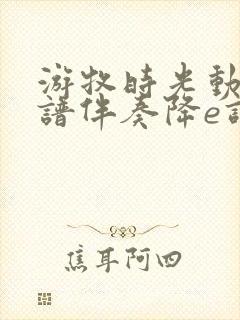 游牧時光動
譜伴奏降e
焦耳阿四